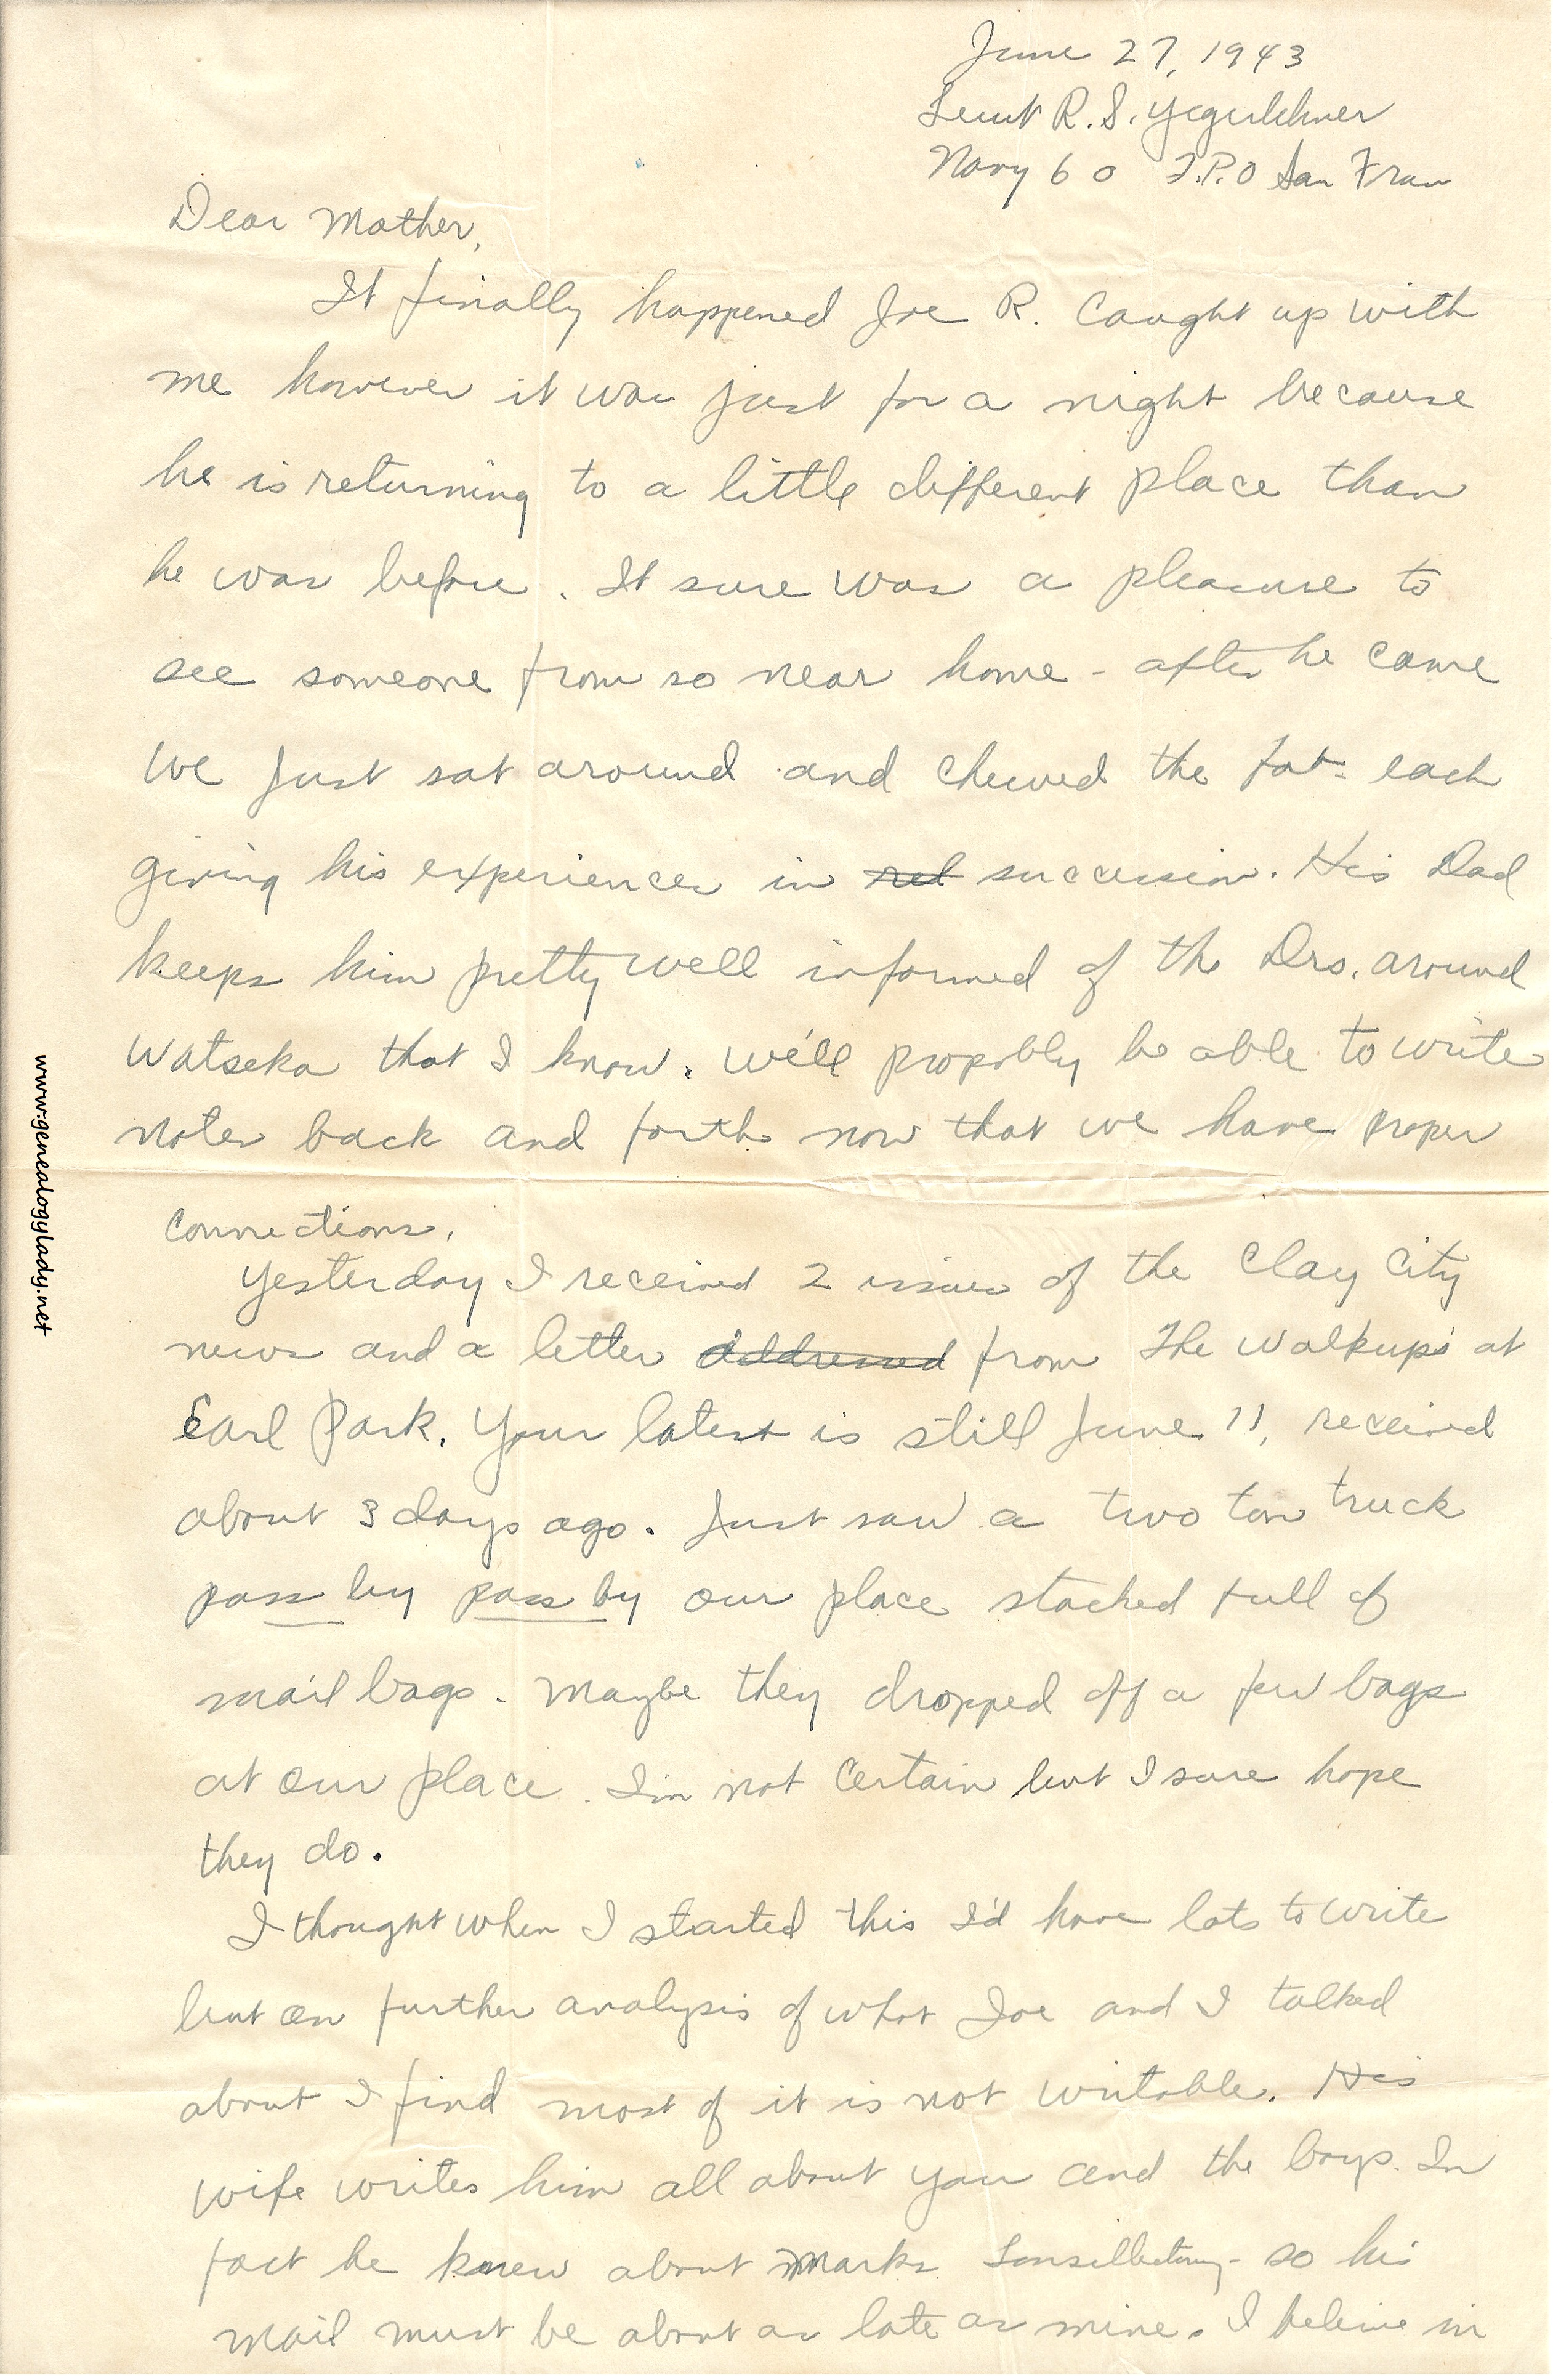 June 27, 1943
Lieut R.S. Yegerlehner
Navy 60 F.P.O San Fran
Dear Mother,
It finally happened Joe R. caught up with
me however it was just for a night because
he is returning to a little different place than
he was before. It sure was a pleasure to
see someone from so near home - after he came
we just sat around and chewed the fat - each
giving his experiences in rel succession. His Dad
keeps him pretty well informed of the Drs. around
Watseka that I know. We'll propobly be able to write
notes back and forth now that we have proper
connections.
Yesterday I received 2 issues of the Clay City
news and a letter addressed from The Walkups' at
Earl Park. Your latest is still June 11, received
about 3 days ago. Just saw a two ton truck
pass by pass by our place stacked full of
mail bags. Maybe they dropped off a few bags
at our place. I'm not certain but I sure hope
they do.
I thought when I started this I'd have lots to write
but on further analysis of what Joe and I talked
about I find most of it is not writable. His
wife writes him all about you and the boys. In
fact he knew about Marks tonsillectomy - so his
mail must be about as late as mine. I beleive in
www.genealogylady.net